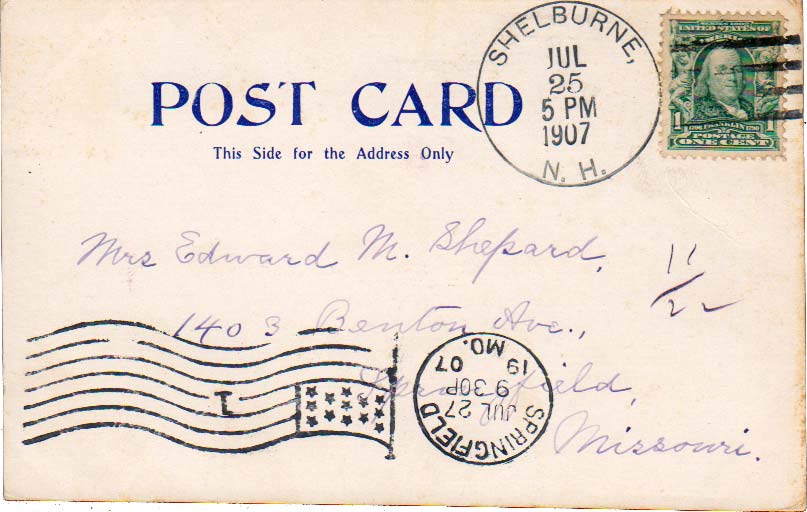 POST CARD
This Side for the Address Only
SHELBURNE,
JUL
25
5 PM
1907
N. H.
SERIES 1902
UNITED STATES OF
AMERICA
1706 FRANKLIN 1790
1 1
POSTAGE
ONE CENT
Mrs Edward M. Shepard,
11/22
1403 Benton Ave.,
Springfield,
Missouri.
1
SPRINGFIELD
JUL 27
9 30P
19 07
MO.